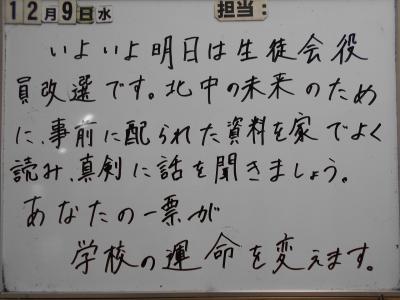 12月9日水 担当：
いよいよ明日は生徒会役
員改選です。北中の未来のため
に、事前に配られた資料を家でよく
読み、真剣に話を聞きましょう。
あなたの一票が
学校の運命を変えます。